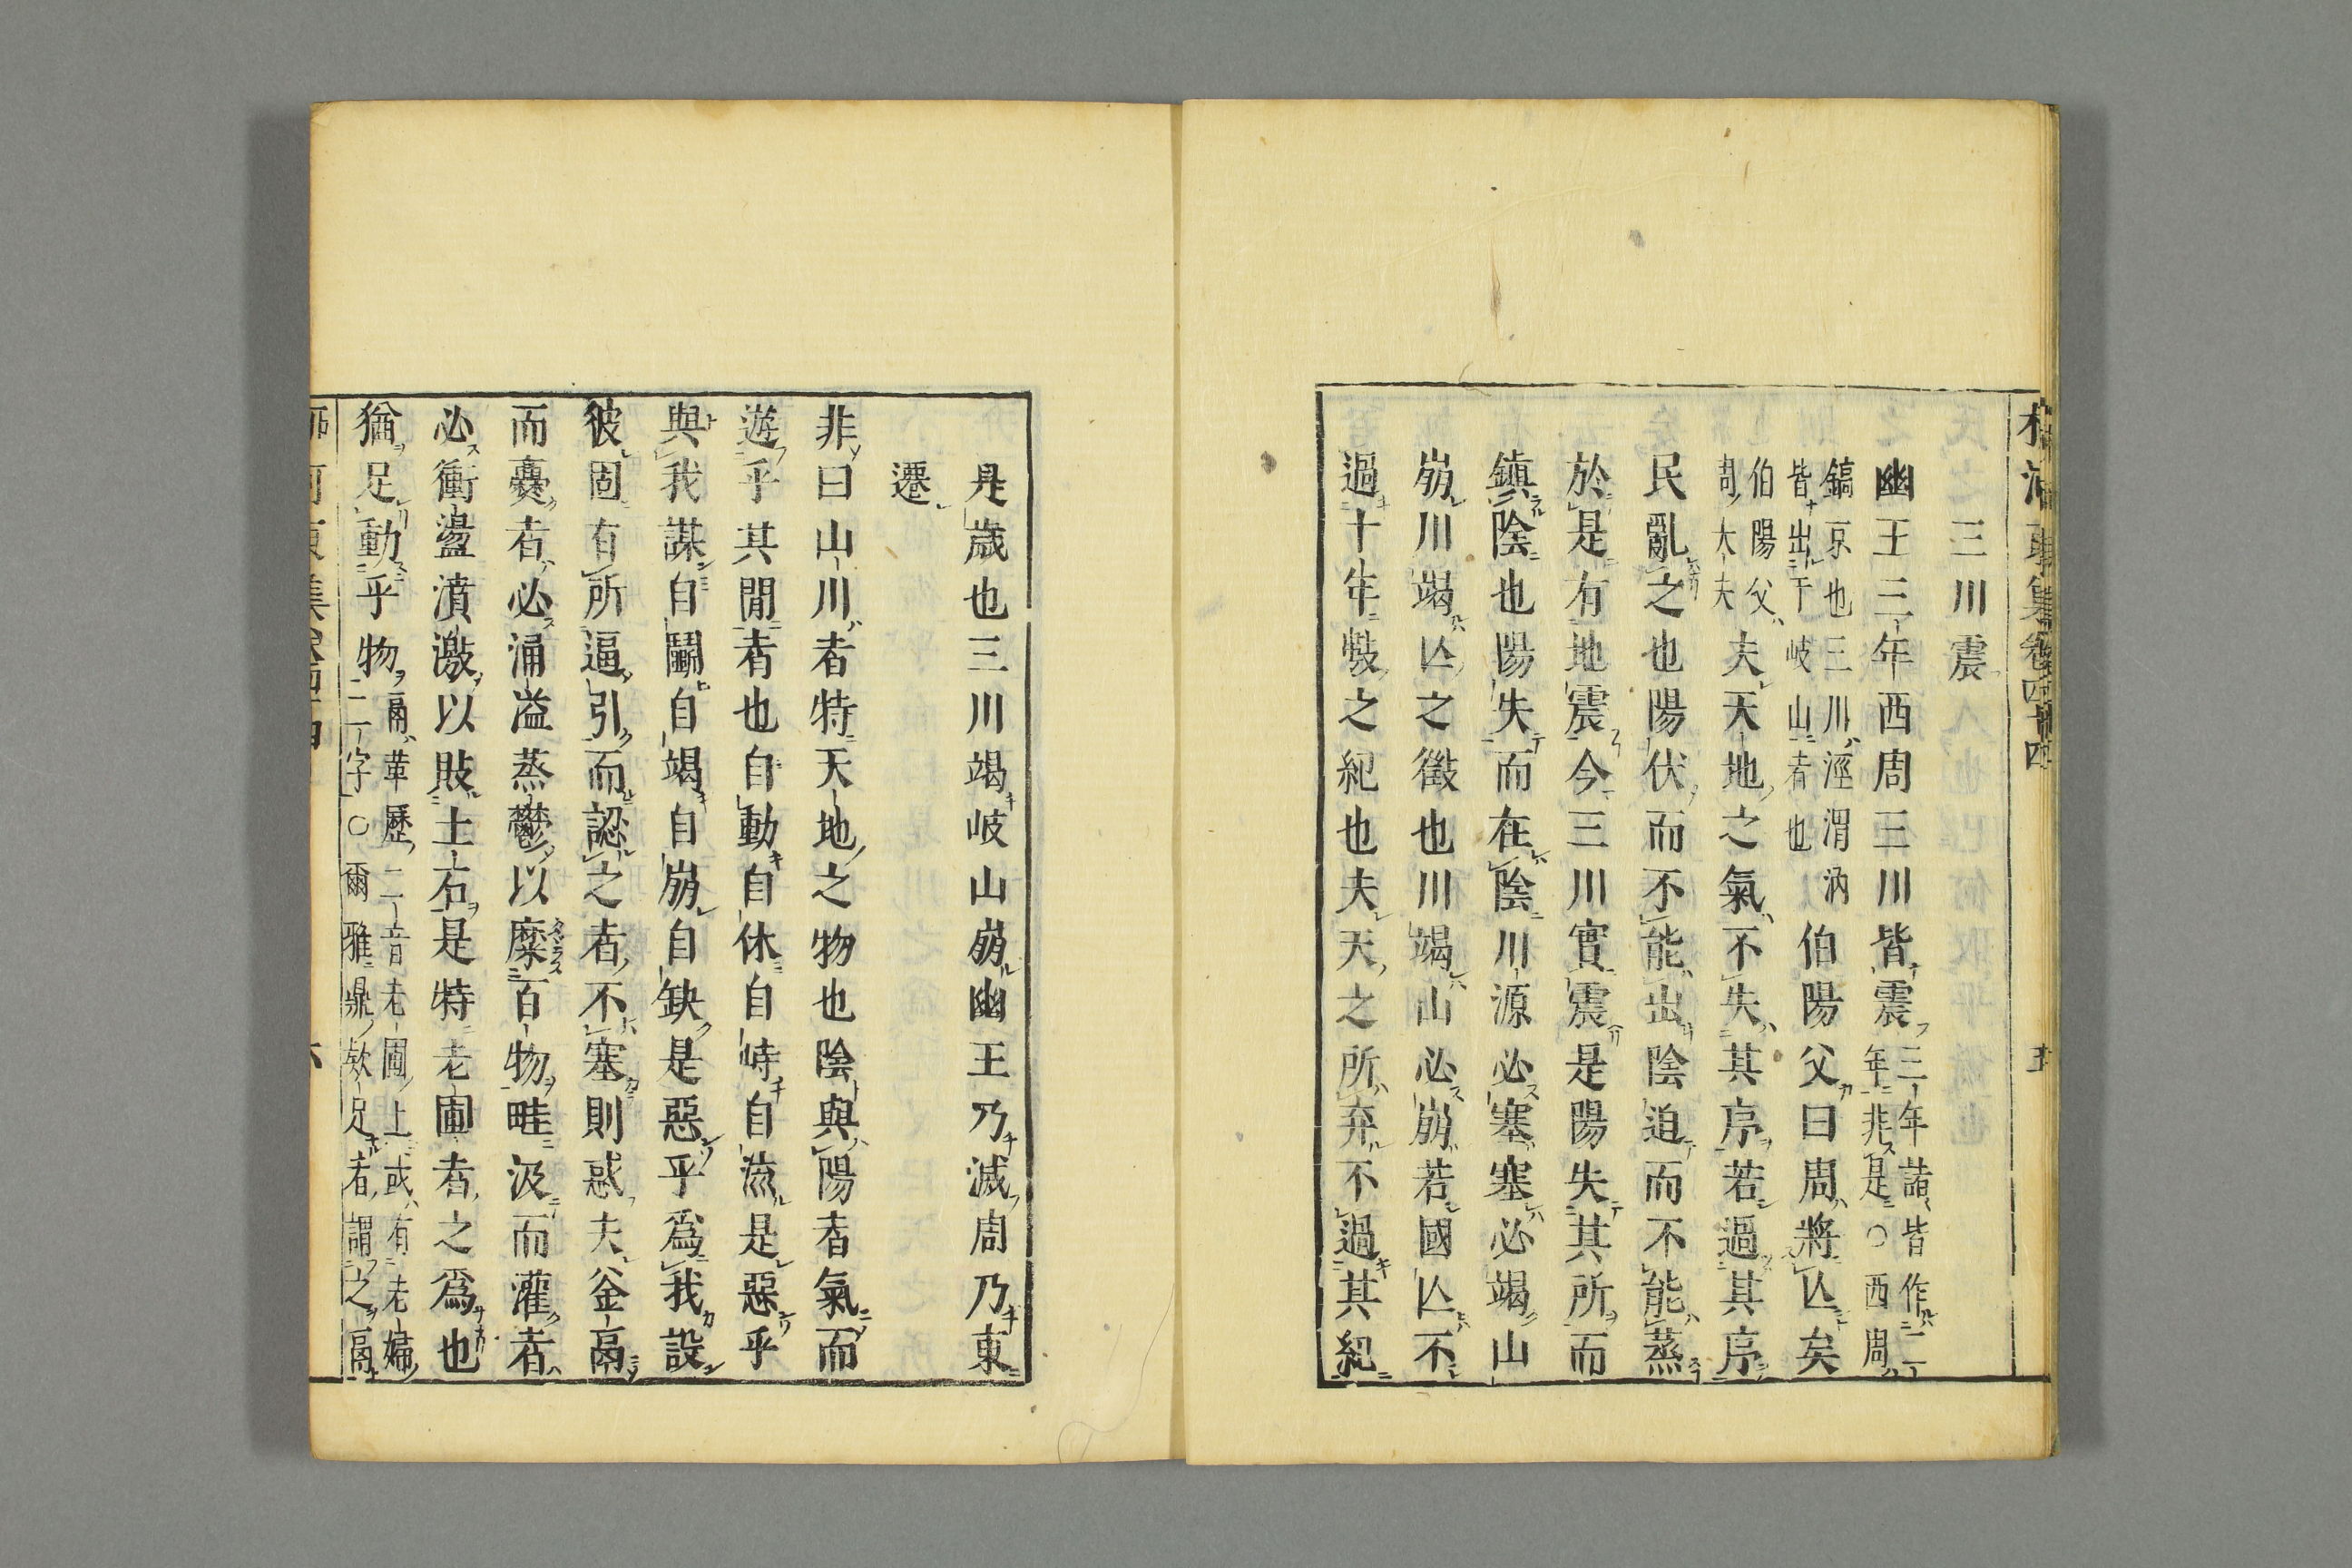 柳河東集卷四十四
五
三川震
幽王三年西周三川皆震三年諸皆作二
年非是○西周
鎬京也三川涇渭汭
皆出于岐山者也伯陽父曰周將亾矣
伯陽父
周大夫夫天地之氣不失其序若過其序
民亂之也陽伏而不能出陰迫而不能蒸
於是有地震今三川實震是陽失其所而
鎮陰也陽失而在陰川源必塞塞必竭山
崩川竭亾之徵也川竭山必崩若國亾不
過十年數之紀也夫天之所弃不過其紀
是歲也三川竭岐山崩幽王乃滅周乃東
遷
非曰山川者特天地之物也陰與陽者氣而
遊乎其間者也自動自休自峙自滋是惡乎
與我謀自鬭自竭自崩自缺是惡乎爲我設
彼固有所逼引而認之者不塞則惑夫釜鬲
而爨者必涌溢蒸鬱以糜百物畦汲而灌者
必衝盪濆激以敗土石是特老圃者之爲也
猶足動乎物鬲革歷二音老圃上或有老婦
二字○爾雅鼎欵足者謂之鬲
柳河東集卷四十四
六